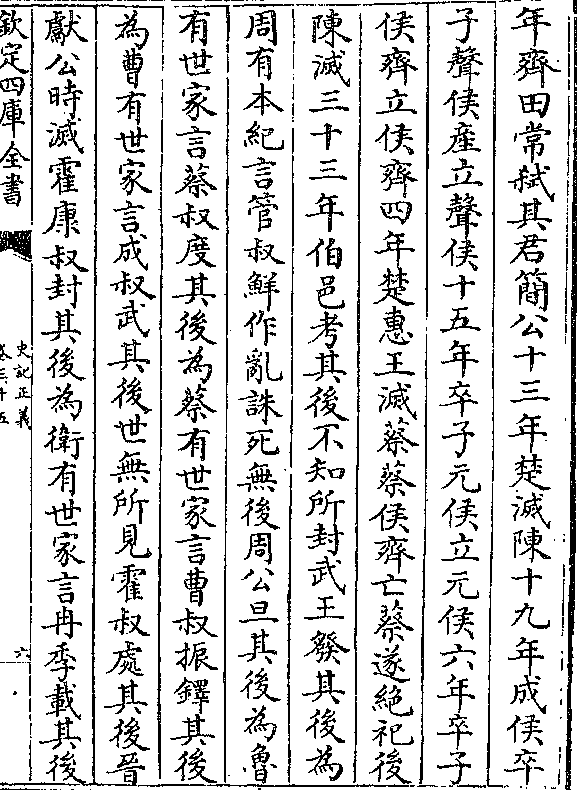 年齊田常弑其君簡公十三年楚滅陳十九年成侯卒
子聲侯産立聲侯十五年卒子元侯立元侯六年卒子
侯齊立侯齊四年楚惠王滅蔡蔡侯齊亡蔡遂絶祀後
陳滅三十三年伯邑考其後不知所封武王發其後為
周有本紀言管叔鮮作亂誅死無後周公旦其後為魯
有世家言蔡叔度其後為蔡有世家言曹叔振鐸其後
為曹有世家言成叔武其後世無所見霍叔處其後晉
獻公時滅霍康叔封其後為衛有世家言冉季載其後
欽定四庫全書
史記正義
卷三十五
六